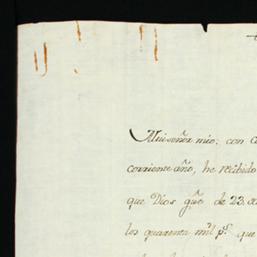 Mui señor mio; con
corriente año, he recibido
que Dios gũe de 23.
los quarenta mil p.s que